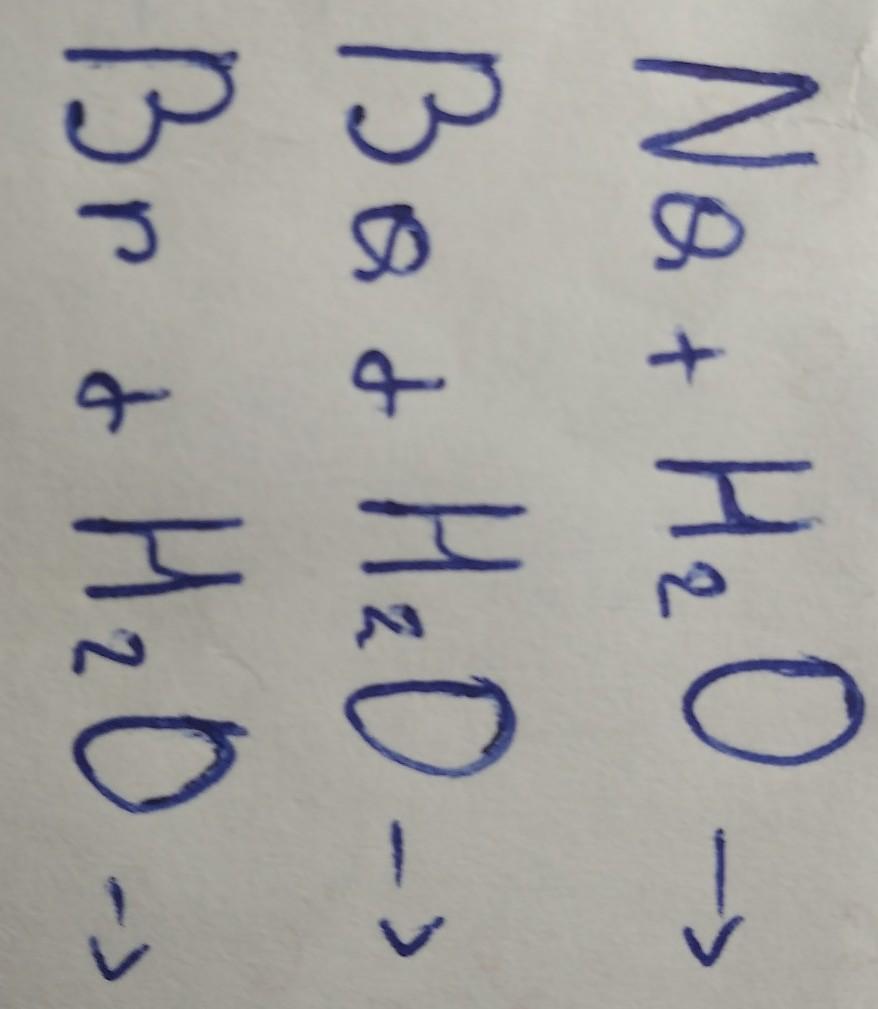 Na + H₂O →
Ba + H₂O →
Br + H₂O →